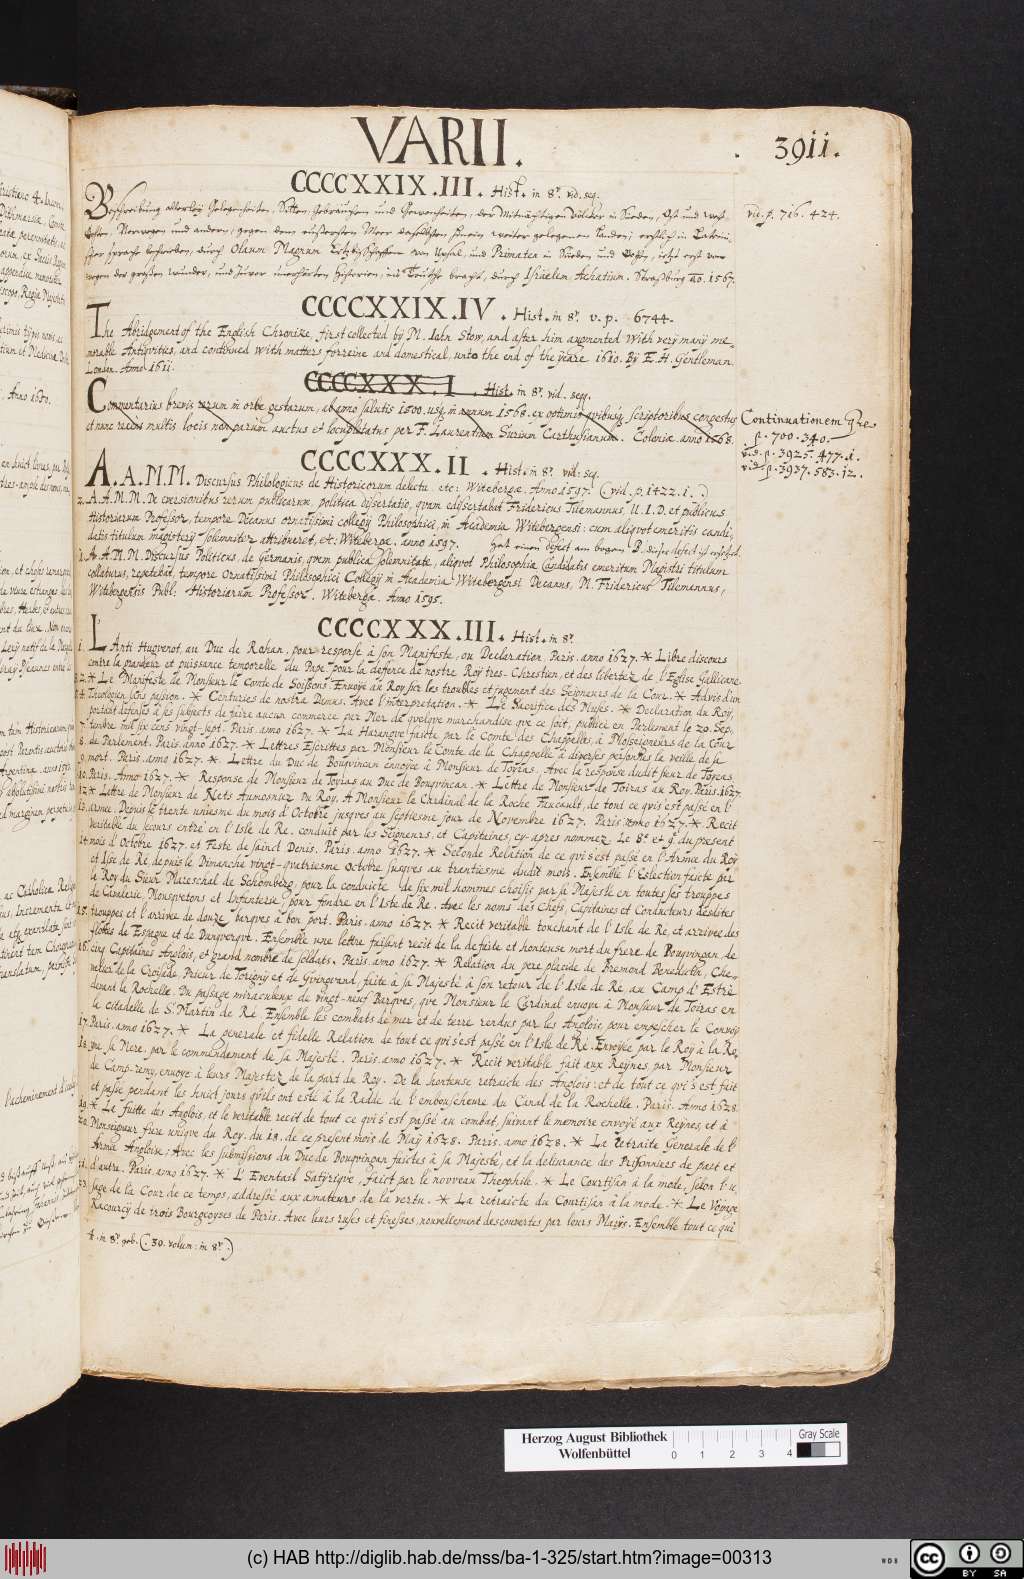 VARII.
3911.
CCCCXXIX.III. Hist. in 8º. vid. seq.
Beschreibung allerley Gelegenheiten, Sitten, Gebräuchen und Gewonheiten, der Mitnächtigen Völcker in Sueden, Ost und West
vid. p. 716. 424.
Gothen, Norwegen und andern, gegen dem eussersten Meer daselbsten hinein weiter gelegenen Landen, erstlich in Lateini-
scher Sprach beschrieben, durch Olaum Magnum Ertzbischoffen von Upsal, und Primaten in Sueden und Gothen, jetzt erst von
wegen der grossen wunder, und zuvor unerhörten Historien, ins Teutsch bracht, durch Israelem Achatium. Straßburg ao. 1567.
CCCCXXIX.IV. Hist. in 8º. v. p. 6744.
The Abridgement of the English Chronike, first collected by M. Iohn Stow, and after him augmented With very many me-
morable Antiqvities, and continued with matters forreine and domestical, unto the end of the yeare 1610. By E. H. Gentleman.
London. Anno 1611.
CCCCXXX.I. Hist. in 8º. vid. seqq.
Commentarius brevis rerum in orbe gestarum, ab anno salutis 1500. usq; in annum 1568. ex optimis quibusq; scriptoribus congestus,
et nunc recens multis locis non parum auctus et locupletatus per F. Laurentium Surium Carthusianum. Coloniæ anno 1568.
Continuationem
p. 700. 340.
vid. p. 3925. 477. 1.
vid. p. 3937. 583. 12.
CCCCXXX.II. Hist. in 8º. vid. seq.
A. A. M. M. Discursus Philologicus de Historicorum delectu. etc: Witebergæ. Anno 1597. (vid. p. 1422. 1.)
2. A. A. M. M. De conversionibus rerum publicarum, politica dissertatio, qvam edissertabat Fridericus Tilemannus, U. I. D. et publicus
Historiarum Professor, tempore Decanus ornatissimi collegij Philosophici, in Academia Witebergensi: cum aliqvot emeritis candi-
datis titulum magisterij solemniter attribueret, etc: Witebergæ. anno 1597. hat einen defect am bogen B. dieser defect ist ersetzet.
3. A. A. M. M. Discursus Politicus de Germanis, qvem publica solemnitate, aliqvot Philosophiæ Candidatis emeritum Magistri titulum
collaturus, repetebat, tempore Ornatissimi Philosophici Collegij in Academia Witebergensi Decanus, M. Fridericus Tilemannus,
Witebergensis Publ: Historiarum Professor. Witebergæ. Anno 1595.
CCCCXXX.III. Hist. in 8º.
1. L'Anti Huguenot, au Duc de Rohan, pour response à son Manifeste, ou Declaration. Paris. anno 1627. * Libre discours
contre la grandeur et puissance temporelle du Pape pour la deffence de nostre Roy tres-Chrestien, et des libertez de l'Eglise Gallicane.
* Le Manifeste de Monsieur le Conte de Soissons. Envoyé au Roy sur les troubles et jugement des Seigneurs de la Cour. * Advis d'un
Theologien sans passion. * Centuries de nostra Damus. Avec l'interpretation. * Le Sacrifice des Muses. * Declaration du Roy,
portant defenses à ses subjects de faire aucun commerce par Mer de qvelqve marchandise qve ce soit, publiee en Parlement le 20. Sep-
tembre mil six cens vingt-sept. Paris. anno 1627. * La Harangve faicte par le Comte des Chappelles, à Messeigneurs de la Cour
de Parlement. Paris. anno 1627. * Lettres Escrittes par Monsieur le Comte de la Chappelle à diverses personnes la veille de sa
mort. Paris. anno 1627. * Lettre du Duc de Bouqvincan envoyée à Monsieur de Toyras. Avec la response dudit sieur de Toyras.
Paris. Anno 1627. * Response de Monsieur de Toyras au Duc de Bouqvincan. * Lettre de Monsieur de Toiras au Roy. Paris. 1627.
* Lettre de Monsieur de Nets Aumosnier du Roy, A Monsieur le Cardinal de la Roche Foucault, de tout ce qvi s'est passé en l'
armee. Depuis le trente uniesme du mois d'Octobre jusqves au septiesme jour de Novembre 1627. Paris. anno 1627. * Recit
veritable du secours entré en l'Isle de Re. conduit par les Seigneurs, et Capitaines, cy-apres nommez. Le 8e et 9e du present
mois d'Octobre 1627. et Feste de sainct Denis. Paris. anno 1627. * Seconde Relation de ce qvi s'est passé en l'Armée du Roy
et Isle de Ré, depuis le Dimanche vingt-qvatriesme Octobre jusqves au trentiesme dudit mois. Ensemble l'Eslection faicte par
le Roy du Sieur Mareschal de Schomberg pour la conduicte de six mil hommes choisis par sa Majesté en toutes ses trouppes
de Cavalerie, Mousqvetons et Infanterie, pour fondre en l'Isle de Re. Avec les noms des Chefs, Capitaines et Conducteurs desdites
trouppes et l'arrivée de douze barqves à bon port. Paris. anno 1627. * Recit veritable touchant de l'Isle de Re, et arrivee des
flottes de Espagne et de Dunqverqve. Ensemble une lettre faisant recit de la defaite et honteuse mort du frere de Bouqvingan, de
cinq Capitaines Anglois, et grand nombre de soldats. Paris. anno 1627. * Relation du pere placide de Bremond Benedictin, Che-
valier de la Croisade Prieur de Torigny et de Gvingvand, faite à sa Majesté à son retour de l'Isle de Ré, au Camp d'Estré
devant la Rochelle. Du passage miraculeux de vingt-neuf Barqves, qve Monsieur le Cardinal envoya à Monsieur de Toiras en
la citadelle de St. Martin de Ré. Ensemble les combats de mer et de terre rendus par les Anglois, pour empescher le Convoy
17. Paris. anno 1627. * La generale et fidelle Relation de tout ce qvi s'est passé en l'Isle de Ré. Envoyée par le Roy à la Ro,
18. yne sa Mere, par le commandament de sa Majesté. Paris. anno 1627. * Recit veritable fait aux Reynes par Monsieur
de Camp-remy, envoyé à leurs Majestez de la part du Roy. De la honteuse retraicte des Anglois: et de tout ce qvi s'est fait
et passé pendant les huict jours qv'ils ont esté à la Radde de l'emboucheure du Canal de la Rochelle. Paris. Anno 1628.
19. * La fuitte des Anglois, et le veritable recit de tout ce qvi s'est passé au combat, suivant le memoire envoyé aux Reynes, et à
20. Monseigneur frere uniqve du Roy. du 18. de ce present mois de May 1628. Paris. anno 1628. * La Retraite Generale de l'
Armée Angloise, Avec les submissions du Duc de Bouqvingan faictes à sa Majesté, et la delivrance des Prisonniers de part et
d'autre. Paris. anno 1627. * L'Eventail Satyriqve, faict par le nouveau Theophile. * Le Courtisan à la mode, selon l'u
sage de la Cour de ce temps, addressé aux amateurs de la vertu. * La retraicte du Courtisan à la mode. * Le Voyage
Racourcy de trois Bourgeoyses de Paris. Avec leurs ruses et finesses, nouvellement descouvertes par leurs Marys. Ensemble tout ce qvi
4. in 8º. geb. (. 30. volum: in 8º.)
Herzog August Bibliothek
Wolfenbüttel
0 1 2 3 4
Gray Scale
(c) HAB http://diglib.hab.de/mss/ba-1-325/start.htm?image=00313
WDB
cc
BY SA